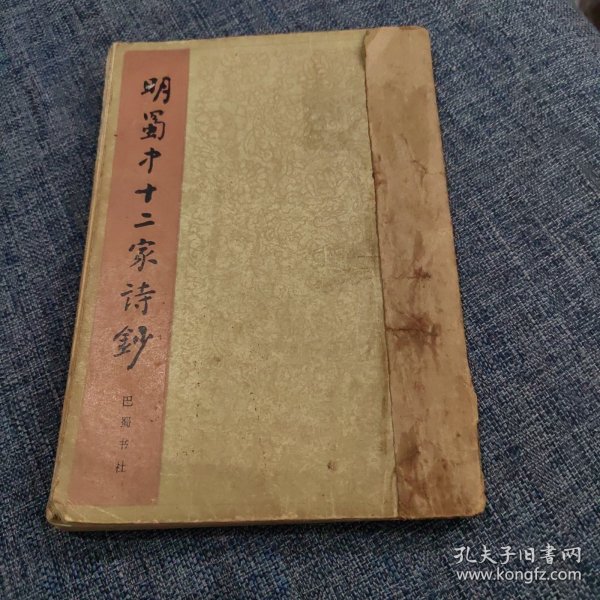 明蜀中十二家詩鈔
巴蜀书社
孔夫子旧书网
www.kongfz.com